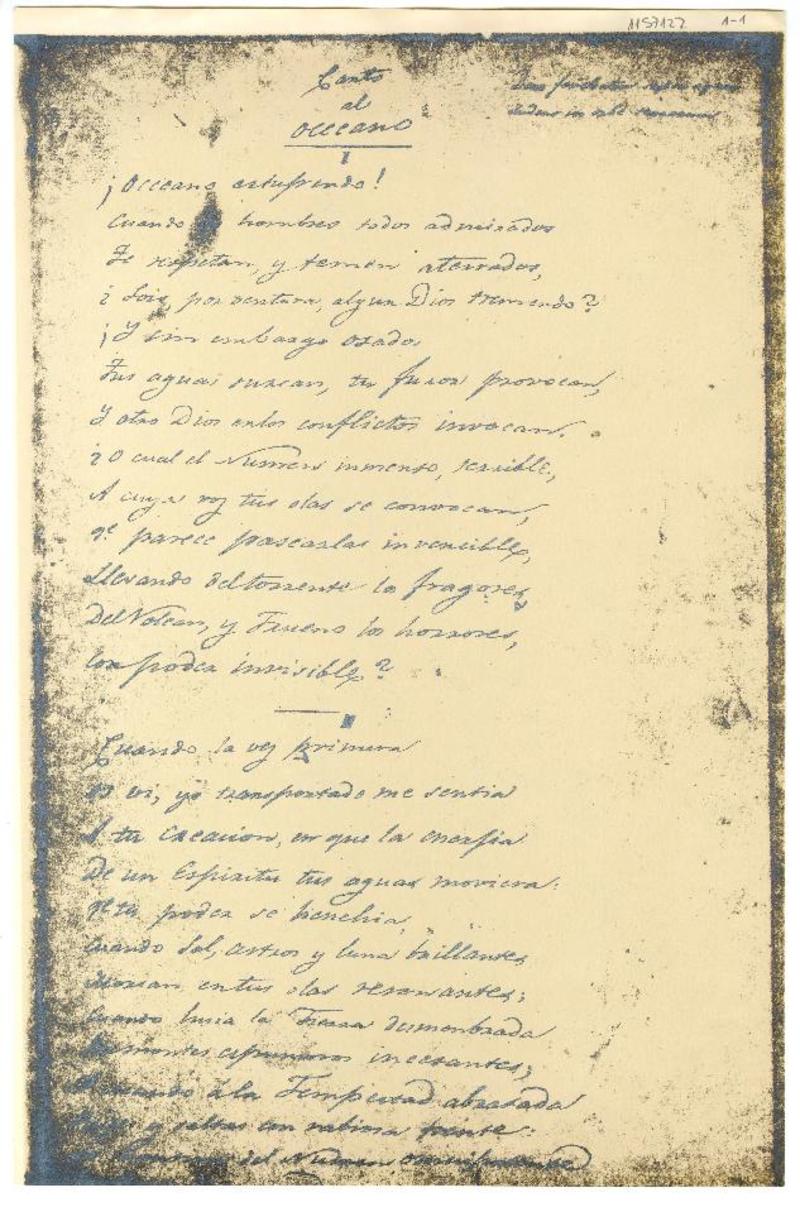 1157127 1-1
Canto
al
Occeano
I
¡Occeano estupendo!
Cuando hombres todos admirados
Te respetan, y temen aterrados,
¿Sois, por ventura, algun Dios tremendo?
¡Y sin embargo osados
Tus aguas surcan, tu furor provocan,
Y otro Dios en los conflictos invocan.
¿O cual el Numen inmenso, terrible,
A cuya voz tus olas se convocan,
qe. parece pasearlas invencible,
Llevando del torrente los fragores,
Del Volcan, y Trueno los horrores,
Con poder invisible?
Cuando la vez primera
os vi, yo transportado me sentia
A tu Creacion, en que la energia
De un Espiritu tus aguas moviera:
qe. tu poder se henchia,
Cuando Sol, astros y luna brillantes
en tus olas resonantes;
Cuando la Tierra desmembrada
montes espumosos incesantes,
á la Tempestad abrasada
y saltas con rabiosa frente:
del Numen omnipotente